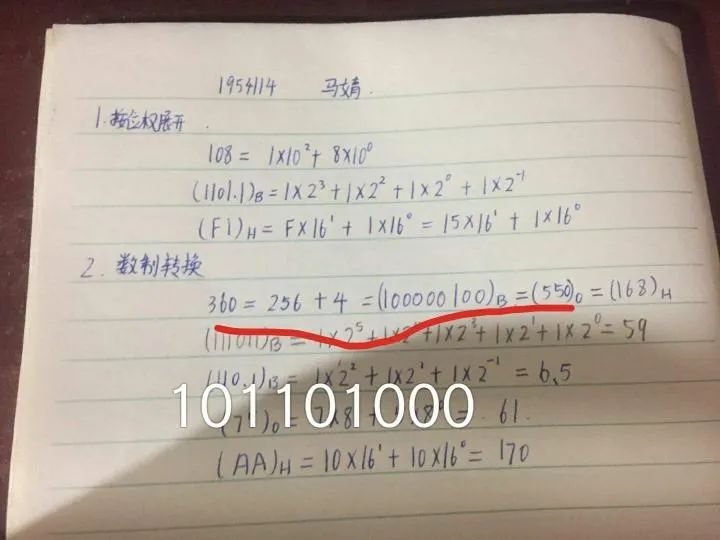 1954114 马婧.
1.按位权展开.
108 = 1×10² + 8×10⁰
(1101.1)B = 1×2³ + 1×2² + 1×2⁰ + 1×2⁻¹
(F1)H = F×16¹ + 1×16⁰ = 15×16¹ + 1×16⁰
2. 数制转换
360 = 256 + 4 = (100000100)B = (550)O = (168)H
(111011)B = 1×2⁵ + 1×2⁴ + 1×2³ + 1×2¹ + 1×2⁰ = 59
(110.1)B = 1×2² + 1×2¹ + 1×2⁻¹ = 6.5
101101000
(7 )O = 7×8 + 8⁰ = 61.
(AA)H = 10×16¹ + 10×16⁰ = 170